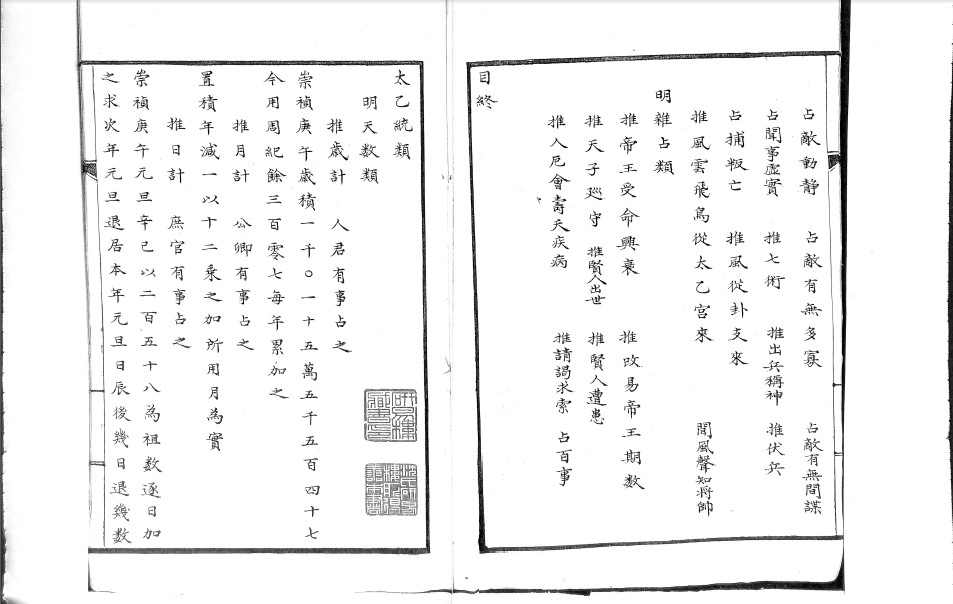 占敵動静 占敵有無多寡 占敵有無間諜
占聞事虛實 推七術 推出兵稱神 推伏兵
占捕叛亡 推風從卦支來
推風雲飛鳥從太乙宮來 聞風聲知將帥
明雜占類
推帝王受命興衰 推改易帝王期數
推天子廵守 推賢人出世 推賢人遭患
推人厄會壽夭疾病 推請謁求索 占百事
目終
太乙統類
明天数類
推歲計 人君有事占之
崇禎庚午歲積一千〇一十五萬五千五百四十七
今用周紀餘三百零七每年累加之
推月計 公卿有事占之
置積年減一以十二乘之加所用月為實
推日計 庶官有事占之
崇禎庚午元旦辛巳以二百五十八為祖数逐日加
之求次年元旦退居本年元旦日辰後幾日退幾数